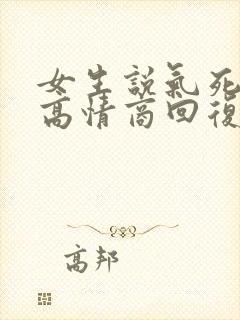 女生説氣死
高情商回復
高邦